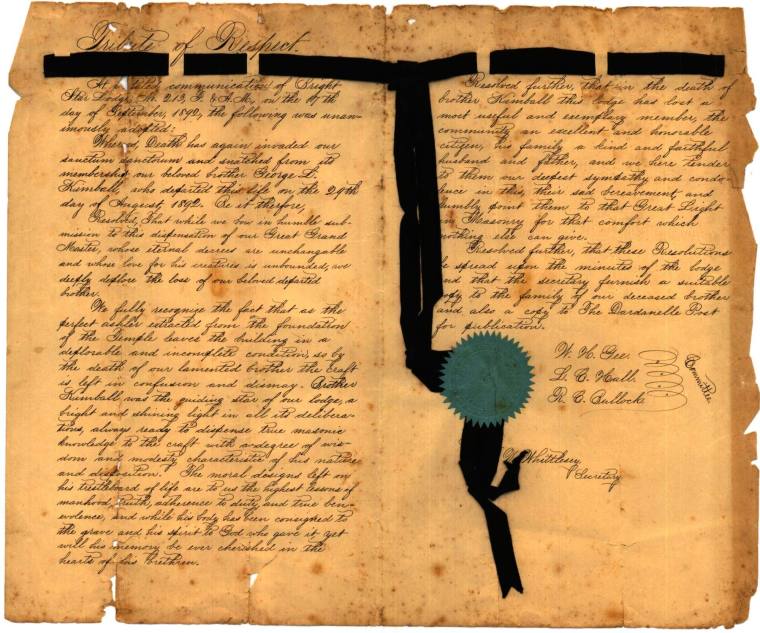 Tribute of Respect.
At a stated communication of Bright
Star Lodge, No. 213, F. & A.M., on the 17th
day of September, 1892, the following was unan-
imously adopted:
Whereas, Death has again invaded our
sanctum sanctorum and snatched from its
membership our beloved brother George L.
Kimball, who departed this life on the 29th
day of August, 1892. Be it therefore,
Resolved, That while we bow in humble sub-
mission to this dispensation of our Great Grand
Master, whose eternal decrees are unchangable
and whose love for his creatures is unbounded, we
deeply deplore the loss of our beloved departed
brother.
We fully recognize the fact that as the
perfect ashler extracted from the foundation
of the Temple leaves the building in a
deplorable and incomplete condition, so by
the death of our lamented brother the craft
is left in confusion and dismay. Brother
Kimball was the guiding star of our lodge, a
bright and shining light in all its delibera-
tions, always ready to dispense true masonic
knowledge to the craft with a degree of wis-
dom and modesty characteristic of his nature
and disposition. The moral designs left on
his trestleboard of life are to us the highest lessons of
manhood, truth, adherence to duty, and true ben-
evolence, and while his body has been consigned to
the grave and his spirit to God who gave it yet
will his memory be ever cherished in the
hearts of his brethren.
Resolved further, that in the death of
brother Kimball this lodge has lost a
most useful and exemplary member, the
community an excellent and honorable
citizen, his family a kind and faithful
husband and father, and we here tender
to them our deepest sympathy and condo-
lence in this, their sad bereavement, and
humbly point them to that Great Light
in Masonry for that comfort which
nothing else can give.
Resolved further, that these Resolutions
be spread upon the minutes of the lodge
and that the secretary furnish a suitable
copy to the family of our deceased brother
and also a copy to The Dardanelle Post
for publication.
W. H. Gee
L. C. Hall. Committee
R. C. Bullock
Whittlesey
Secretary